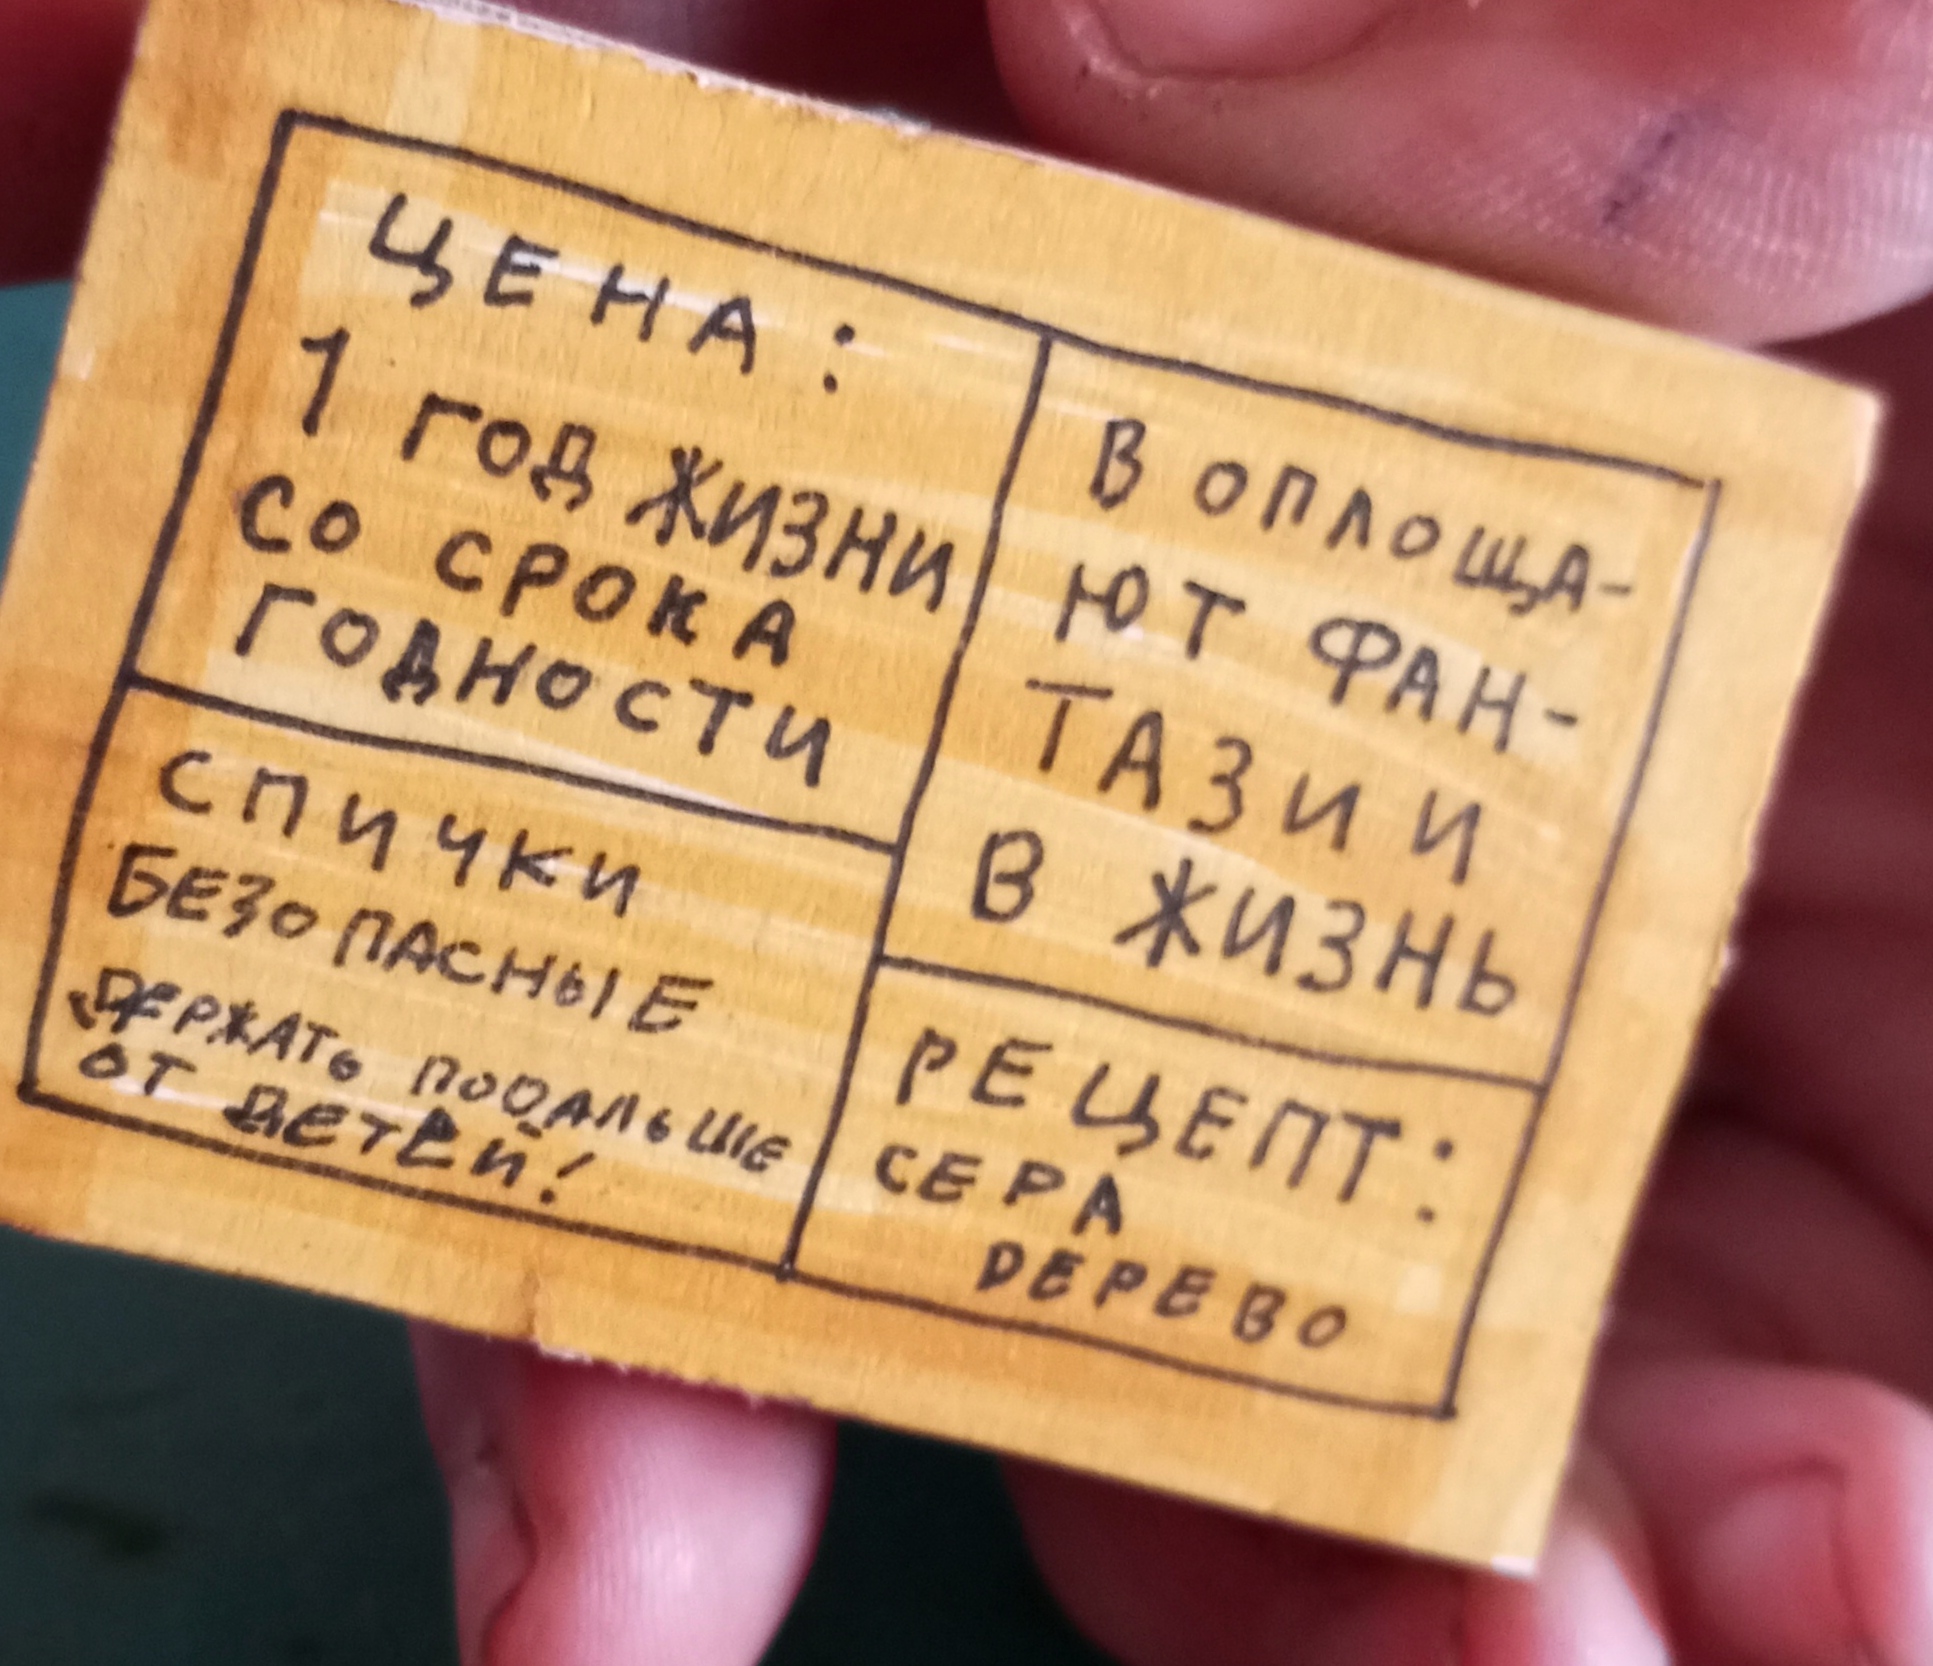 ЦЕНА:
1 ГОД ЖИЗНИ
СО СРОКА
ГОДНОСТИ
ВОПЛОЩА-
ЮТ ФАН-
ТАЗИИ
В ЖИЗНЬ
СПИЧКИ
БЕЗОПАСНЫЕ
ДЕРЖАТЬ ПОДАЛЬШЕ
ОТ ДЕТЕЙ!
РЕЦЕПТ:
СЕРА
DЕРЕВО